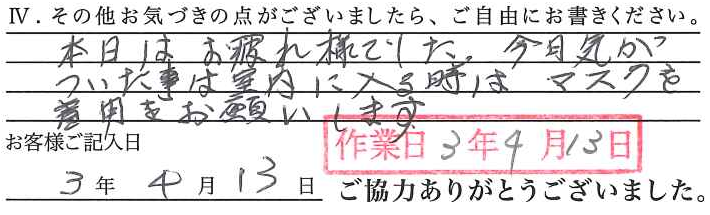 Ⅳ．その他お気づきの点がございましたら、ご自由にお書きください。
本日はお疲れ様でした。今日気が
ついた事は室内に入る時はマスクを
着用をお願いします
お客様ご記入日
作業日 3年4月13日
3年4月13日 ご協力ありがとうございました。